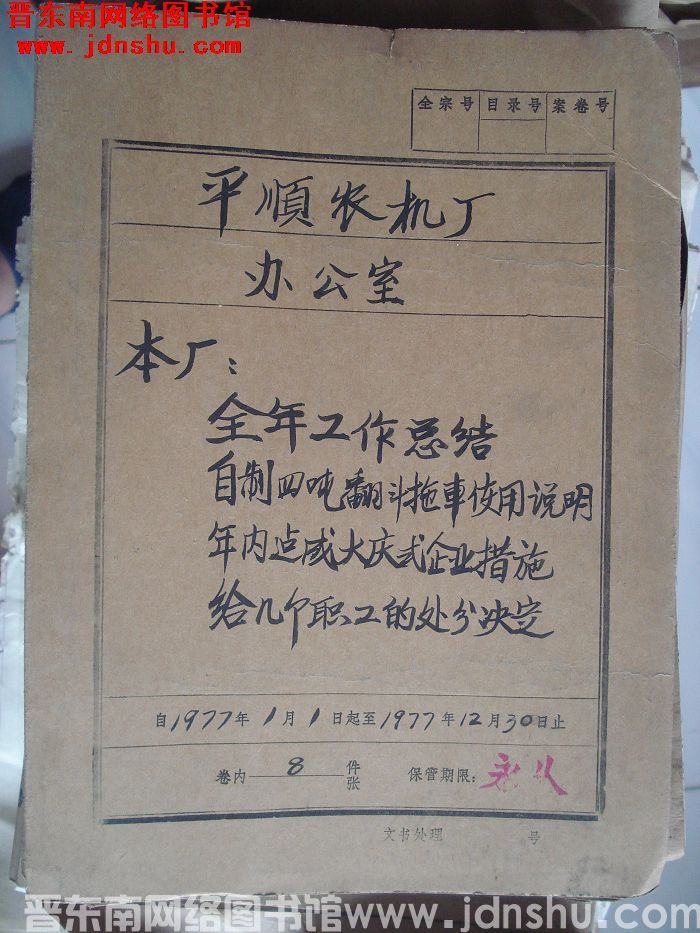 晋东南网络图书馆
www.jdnshu.com
全宗号 目录号 案卷号
平順农机厂
办公室
本厂：
全年工作总结
自制四吨翻斗拖車使用说明
年内迠成大庆式企业措施
给几个职工的处分决定
自1977年1月1日起至1977年12月30日止
卷内 8 件张 保管期限：永久
文书处理 号
晋东南网络图书馆www.jdnshu.com